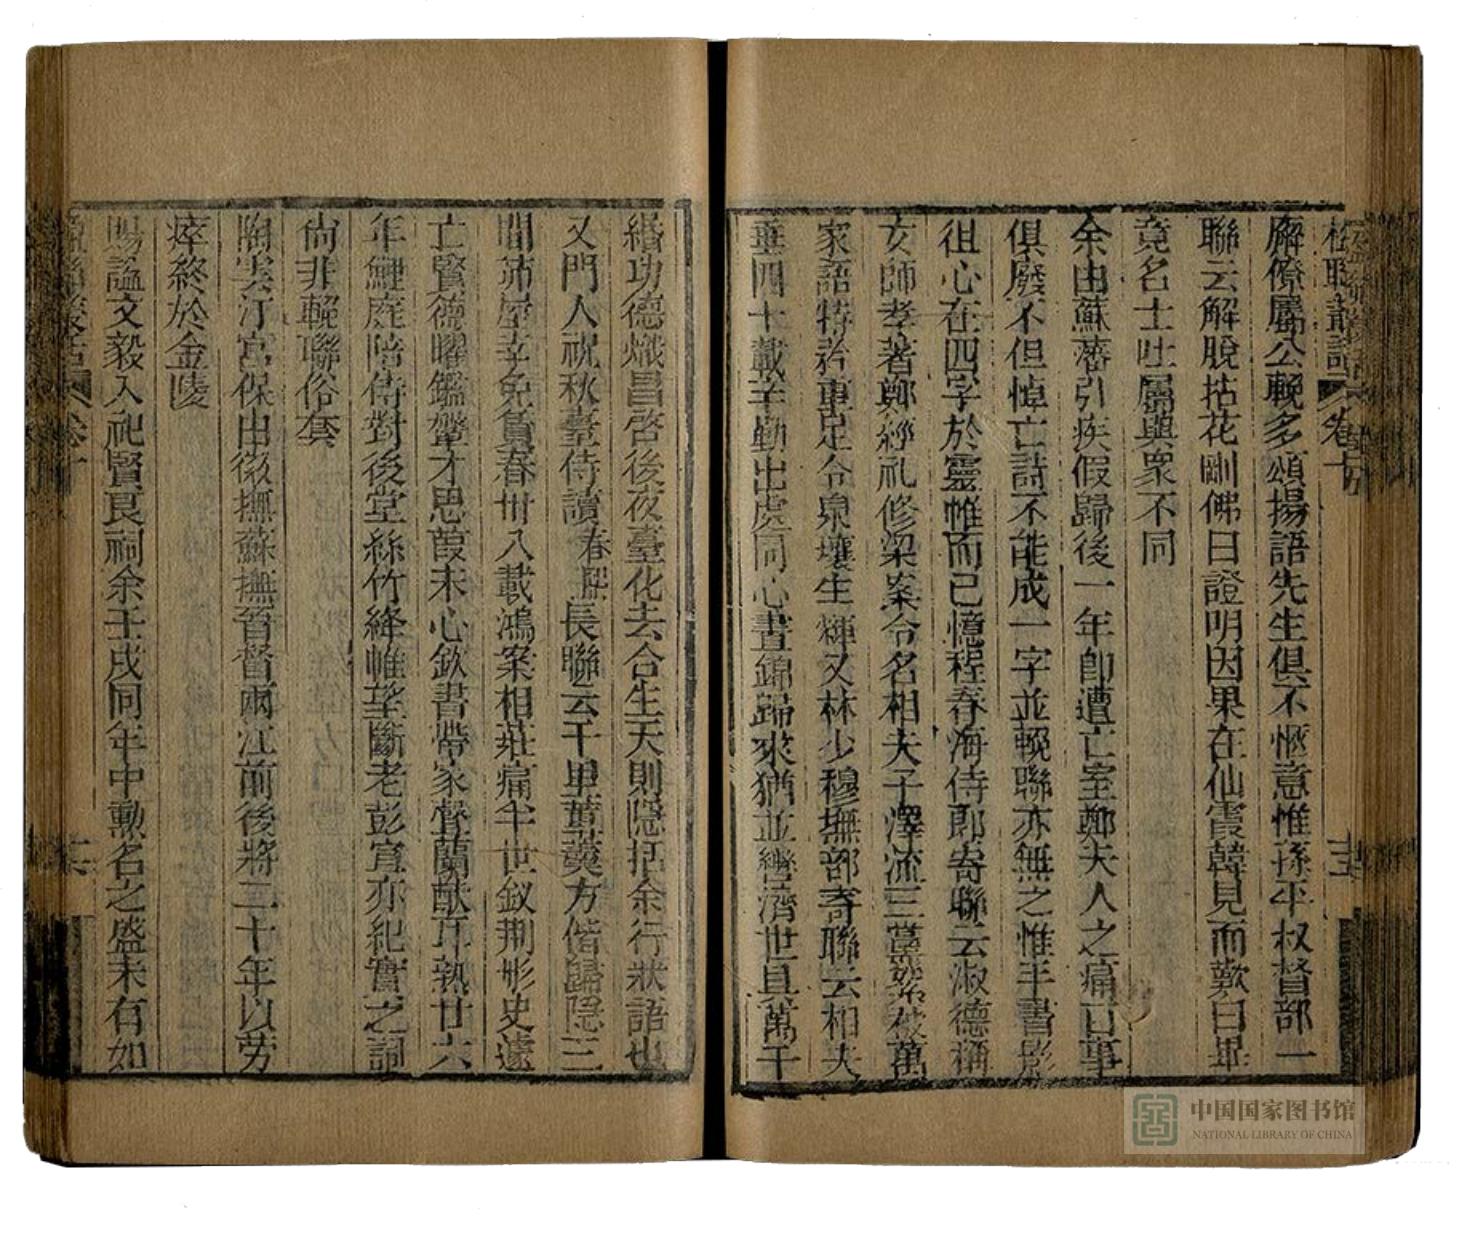 楹聯叢話 卷十 十五
廨僚屬公輓多頌揚語先生俱不愜意惟孫平叔督部一
聯云解脫拈花剛佛日證明因果在仙霞韓見而歎曰畢
竟名士吐屬與眾不同
余由蘇藩引疾假歸後一年卽遭亡室鄭夫人之痛百事
俱廢不但悼亡詩不能成一字並輓聯亦無之惟手書影
徂心在四字於靈帷而已憶程春海侍郎寄聯云淑德稱
女師孝著鄭經禮修梁案令名相夫子澤流三黨蔭被萬
家語特矜重足令泉壤生輝又林少穆撫部寄聯云相夫
垂四十載辛勤出處同心晝錦歸來猶並轡濟世具萬千
緡功德熾昌啓後夜臺化去合生天則隱括余行狀語也
又門人祝秋臺侍讀春熙長聯云千里葉蓂方偕歸隱三
間茆屋幸免賃舂卅八載鴻案相莊痛半世釵荆彤史遽
亡賢德曜鑑鞶才思葭末心欽書帶家聲蘭猷耳熟廿六
年鯉庭陪侍對後堂絲竹絳帷望斷老彭宣亦紀實之詞
尙非輓聯俗套
陶雲汀宮保由徽撫蘇撫晉督兩江前後將二十年以勞
瘁終於金陵
賜謚文毅入祀賢良祠余壬戌同年中勳名之盛未有如
楹聯叢話 卷十 十六
中国国家图书馆
NATIONAL LIBRARY OF CHINA